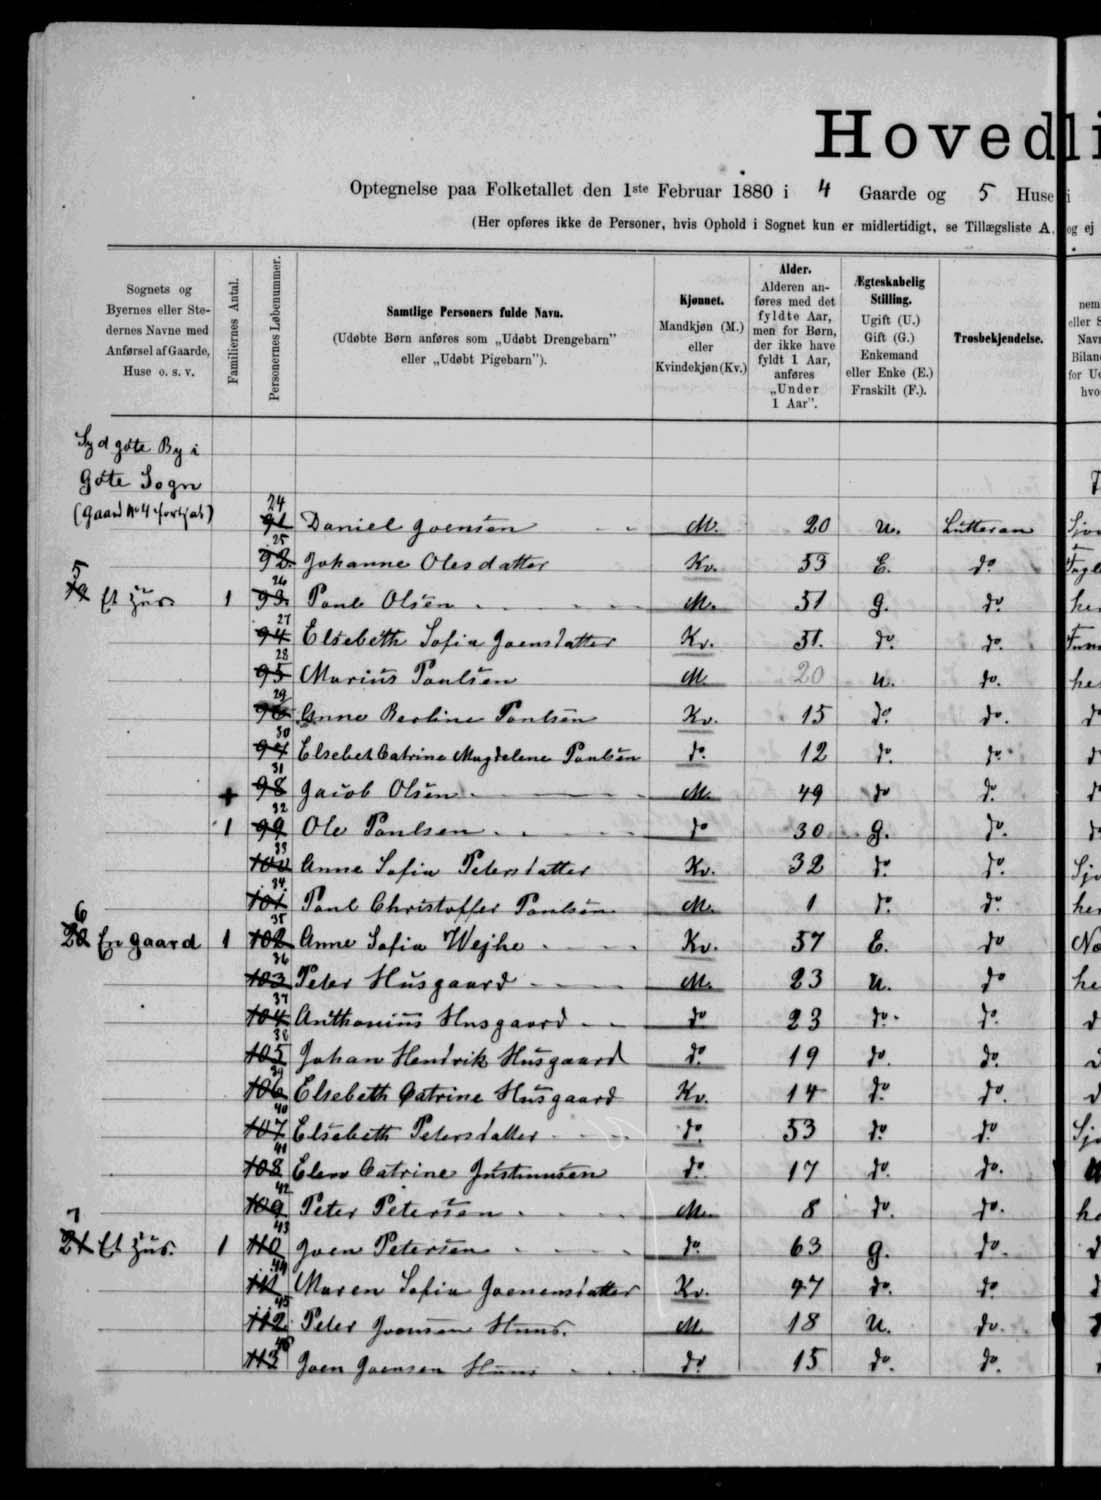 Hovedli
Optegnelse paa Folketallet den 1ste Februar 1880 i 4 Gaarde og 5 Huse i
(Her opføres ikke de Personer, hvis Ophold i Sognet kun er midlertidigt, se Tillægsliste A. og ej
Sognets og Byernes eller Stedernes Navne med Anførsel af Gaarde, Huse o. s. v.
Familiernes Antal.
Personernes Løbenummer.
Samtlige Personers fulde Navn.
(Udøbte Børn anføres som „Udøbt Drengebarn" eller „Udøbt Pigebarn").
Kjønnet.
Mandkjøn (M.) eller Kvindekjøn (Kv.)
Alder.
Alderen anføres med det fyldte Aar, men for Børn, der ikke have fyldt 1 Aar, anføres „Under 1 Aar".
Ægteskabelig Stilling.
Ugift (U.) Gift (G.) Enkemand eller Enke (E.) Fraskilt (F.).
Trosbekjendelse.
Syd göte By i
Göte Sogn
(Gaard No 4 fortsat)
24 91 Daniel Joensen M. 20 U. Lutteran
25 92 Johanne Olesdatter Kv. 53 E. do
5 19 Et Hus. 1 26 93 Poul Olsen M. 51 g. do
27 94 Elsebeth Sofia Joensdatter Kv. 51. do. do.
28 95 Marius Poulsen M. 20 u. do.
29 96 Anne Beoline Poulsen Kv. 15 do. do.
30 97 Elsebet Catrine Magdelene Poulsen do. 12 do. do.
+ 31 98 Jacob Olsen M. 49 do do.
1 32 99 Ole Poulsen do 30 g. do.
33 100 Anne Sofia Petersdatter Kv. 32 do. do.
34 101 Poul Christoffer Poulsen M. 1 do. do.
6 20 En gaard 1 35 102 Anne Sofia Wejhe Kv. 57 E. do
36 103 Peter Husgaard M. 23 U. do
37 104 Anthonius Husgaard do 23 do. do.
38 105 Johan Hendrik Husgaard do. 19 do. do.
39 106 Elsebeth Catrine Husgaard Kv. 14 do. do.
40 107 Elsebeth Petersdatter do. 53 do. do.
41 108 Elen Catrine Justinussen do. 17 do. do.
42 109 Peter Petersen M. 8 do. do.
7 21 Et Hus. 1 43 110 Joen Petersen do. 63 g. do.
44 111 Maren Sofia Joenensdatter Kv. 47 do. do
45 112 Peter Joensen M. 18 U. do.
46 113 Joen Joensen do. 15 do. do.